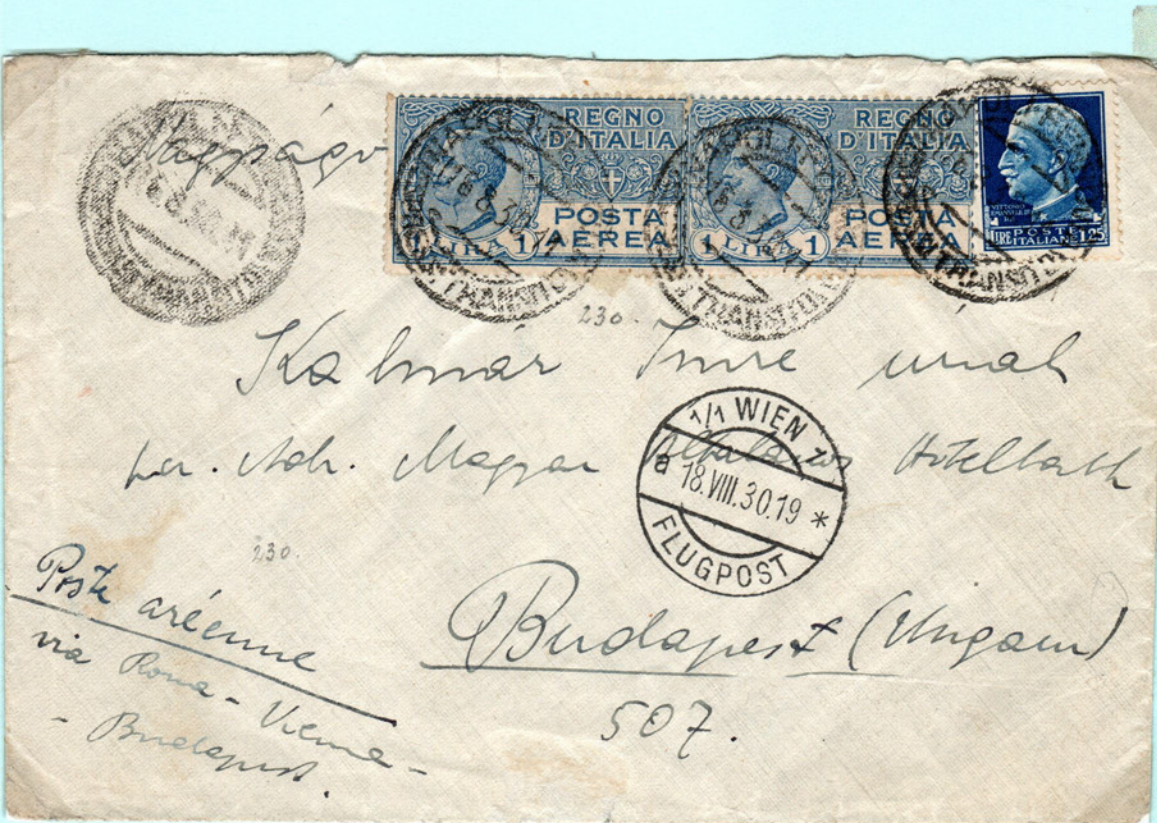 Nagyságo
REGNO
D'ITALIA
POSTA
AEREA
1 LIRA 1
REGNO
D'ITALIA
POSTA
AEREA
1 LIRA 1
VITTORIO
EMANUELE III
LIRE POSTE 1,25
ITALIANE
230.
Kalmár Imre úrnak
per. Adr. Magyar Általános Hitelbank
1/1 WIEN 1/1
a 18.VIII.30.19 *
FLUGPOST
230.
Poste aréenne
via Roma - Vienna -
- Budapest.
Budapest (Ungarn)
507.